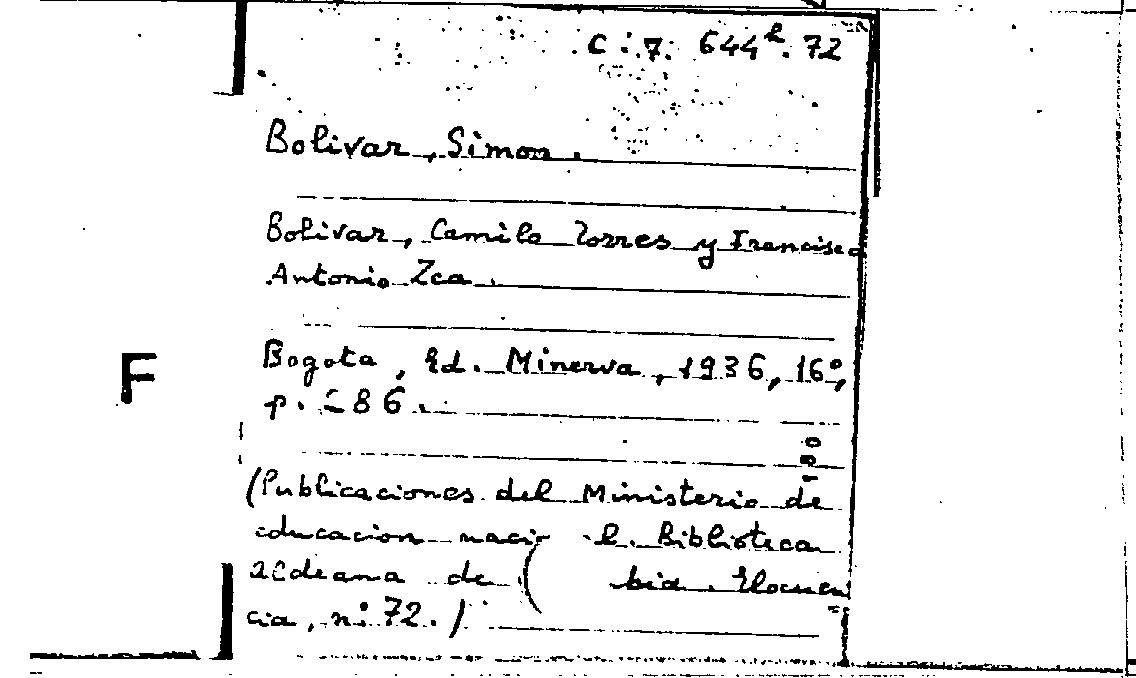 C :. 7. 644². 72
Bolivar, Simon.
Bolivar, Camilo Torres y Francisco
Antonio Zea.
Bogota, Ed. Minerva, 1936, 16º,
p. 86.
F
(Publicaciones del Ministerio de
educacion naci l. Biblioteca
aldeana de bia. Elocuen
cia, nº 72.)